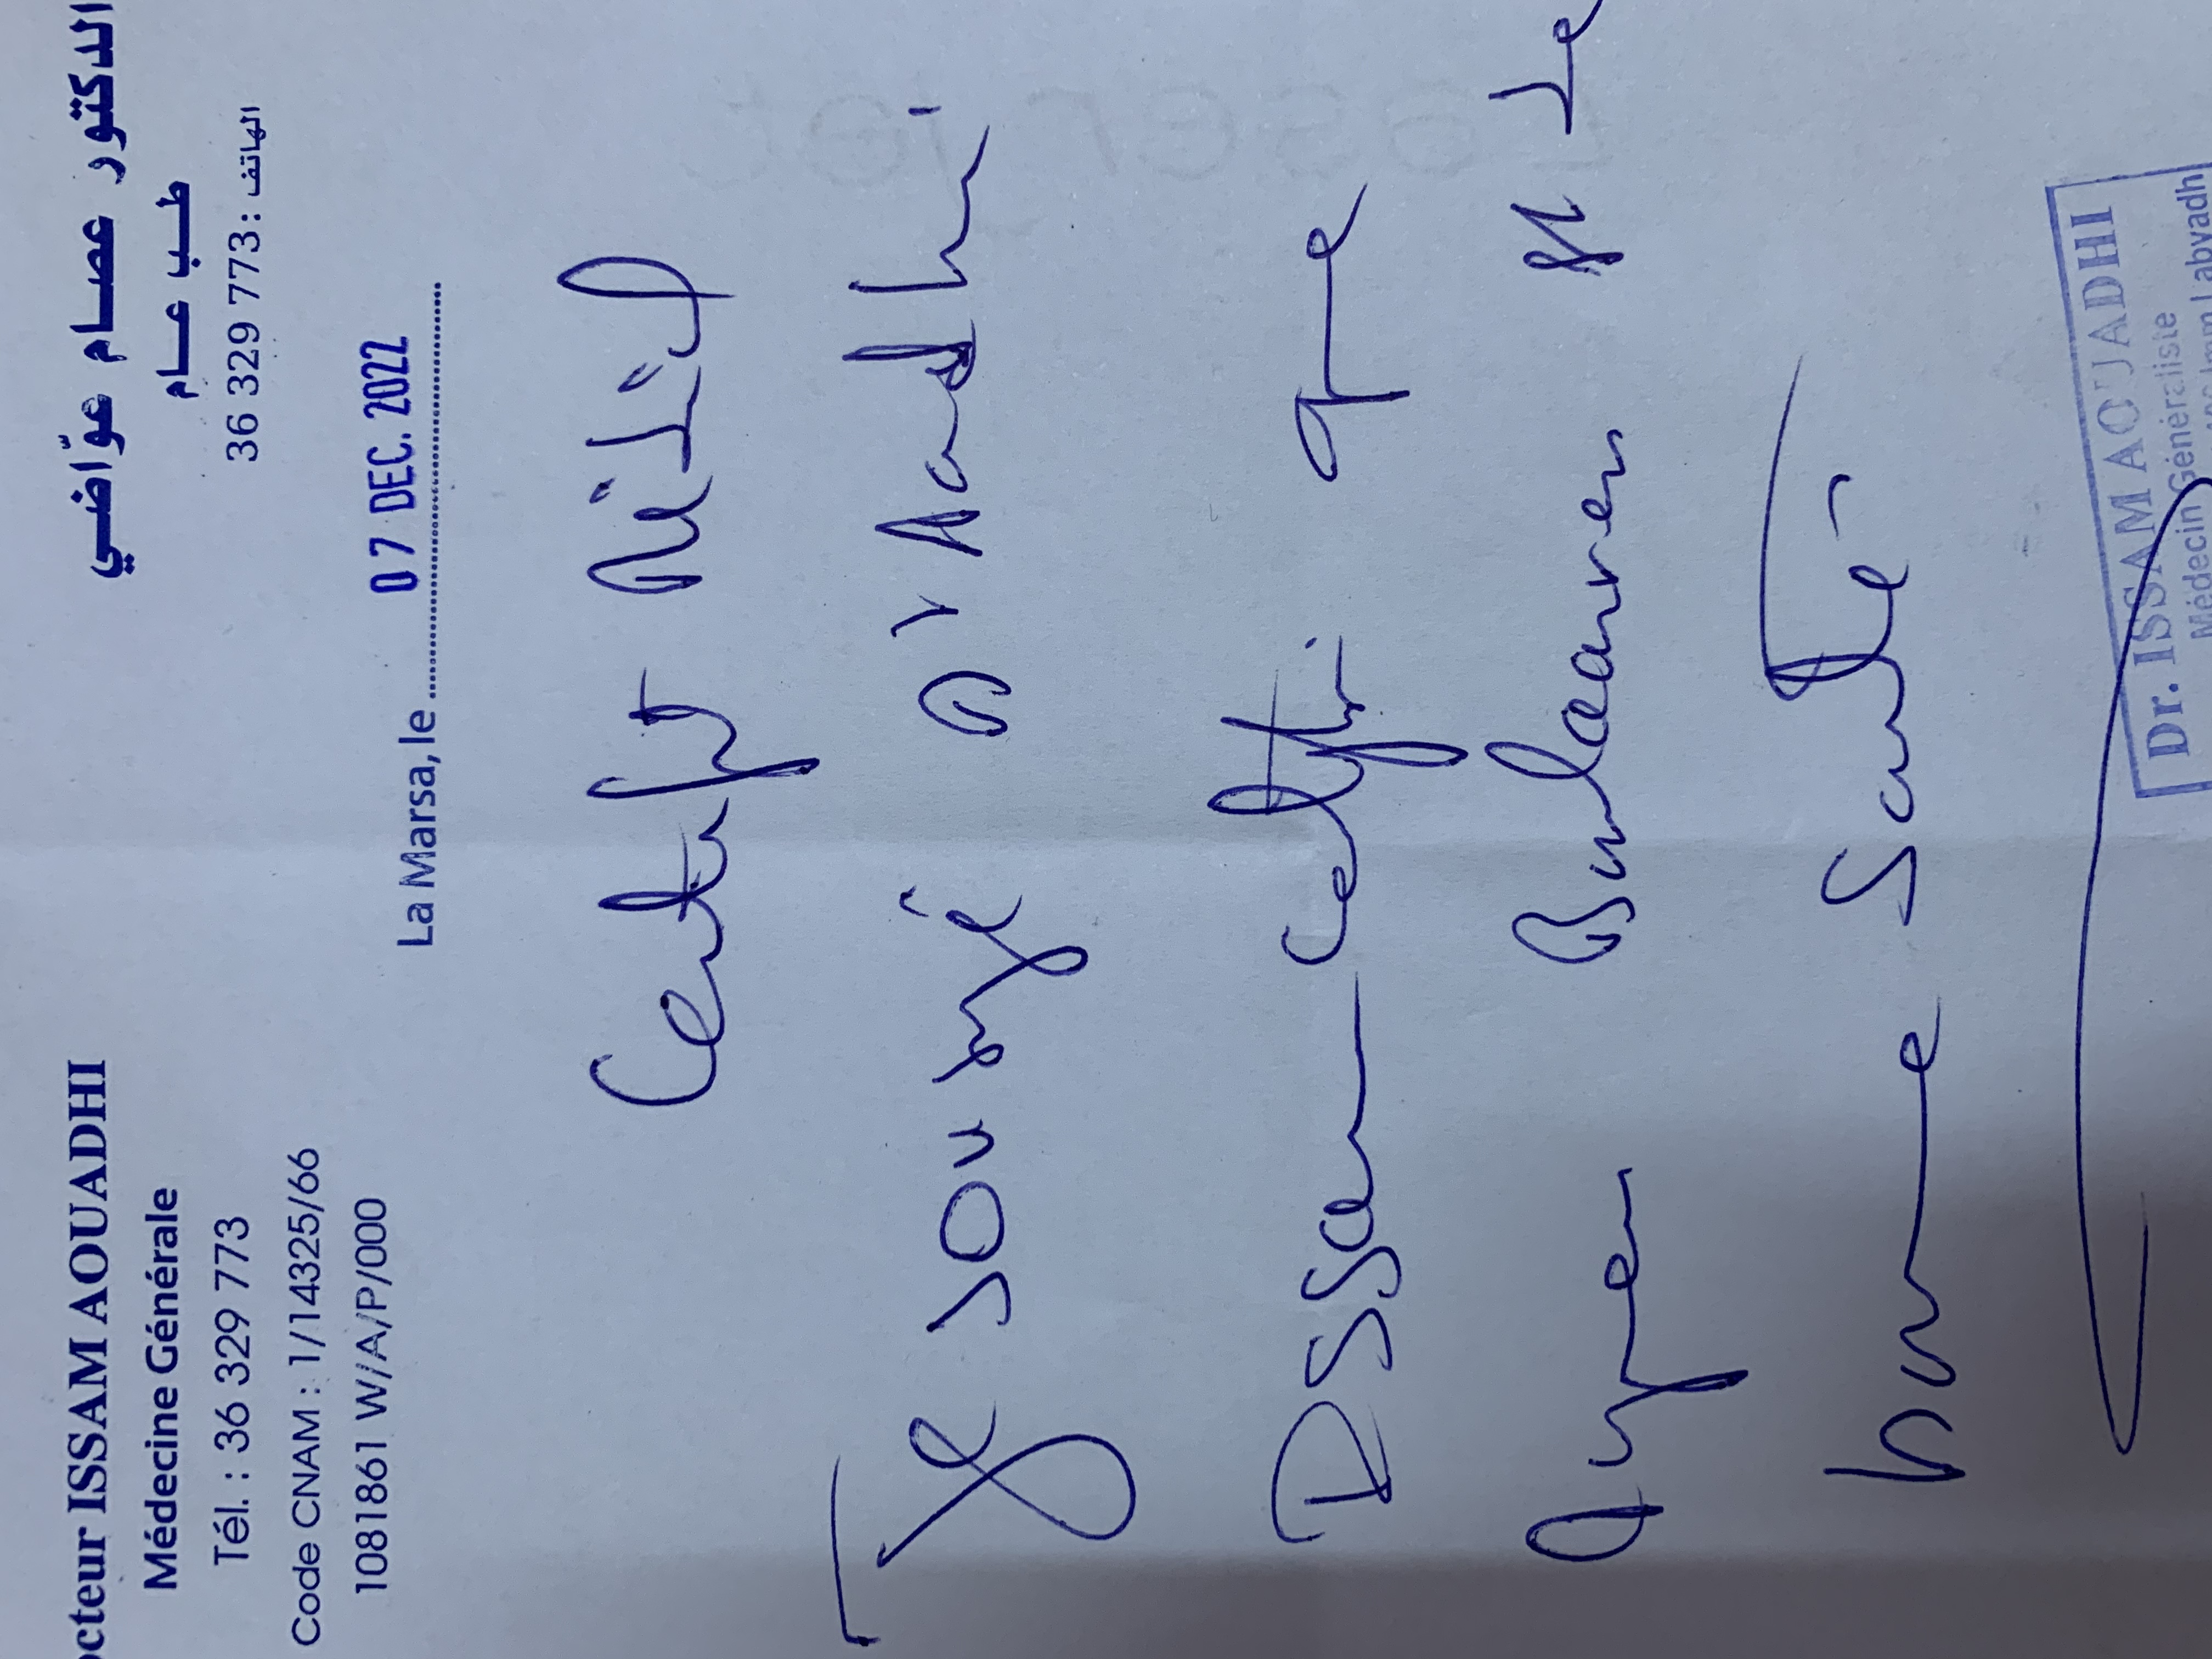 octeur ISSAM AOUADHI
Médecine Générale
Tél. : 36 329 773
Code CNAM : 1/14325/66
1081861 W/A/P/000
الدكتور عصام عوّاضي
طب عام
الهاتف : 36 329 773
La Marsa, le 07 DEC. 2022
Certifict Médicl
Je soussigé Dr Aouadhi
Issam certifie que
est de
bonne Santé
Dr. ISSAM AOUADHI
Médecin Généraliste